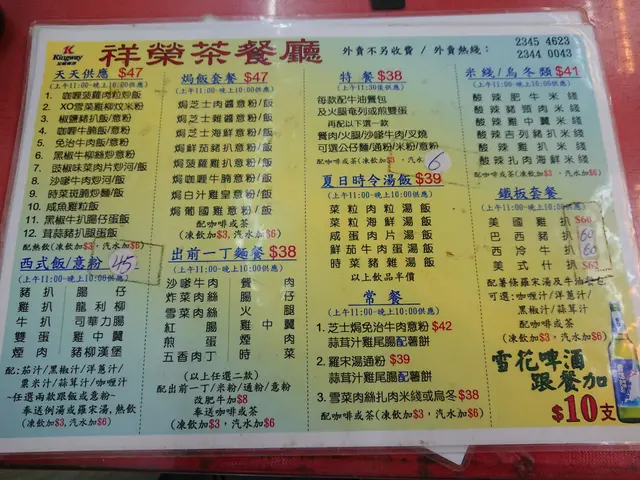 Kingway
祥榮茶餐廳
外賣不另收費 / 外賣熱綫：
2345 4623
2344 0043
天天供應 $47
(上午11:00-晚上10:00供應)
1. 咖喱菠蘿肉粒炒飯
2. XO雪菜雞柳炆米粉
3. 椒鹽豬扒飯/意粉
4. 咖喱牛腩飯/意粉
5. 免治牛肉飯/意粉
6. 黑椒牛柳絲炒意粉
7. 豉椒味菜肉片炒河/飯
8. 沙嗲牛肉炒河/飯
9. 時菜斑腩炒麵/飯
10. 咸魚雞粒飯
11. 黑椒牛扒腸仔蛋飯
12. 茸蒜豬扒腿蛋飯
配熱飲(凍飲加$3，汽水加$6)
西式飯/意粉 45-
(上午11:00-晚上10:00供應)
豬扒 腸仔
雞扒 龍利柳
牛扒 司華力腸
雙蛋 雞中翼
煙肉 豬柳漢堡
配：茄汁/黑椒汁/洋蔥汁/
粟米汁/蒜茸汁/咖喱汁
~任選兩款跟飯或意粉~
奉送例湯或羅宋湯,熱飲
(凍飲加$3，汽水加$6)
焗飯套餐 $47
(上午11:00-晚上10:00供應)
焗芝士肉醬意粉/飯
焗芝士肉絲意粉/飯
焗芝士海鮮意粉/飯
焗鮮茄豬扒意粉/飯
焗菠蘿雞扒意粉/飯
焗咖喱牛腩意粉/飯
焗白汁雞皇意粉/飯
焗葡國雞意粉/飯
配咖啡或茶
(凍飲加$3，汽水加$6)
出前一丁麵餐 $38
(上午11:00-晚上10:00供應)
沙嗲牛肉 餐肉
炸菜肉絲 腸仔
雪菜肉絲 火腿
紅腸 雞中翼
煎蛋 煙肉
五香肉丁 時菜
(以上任選二款)
配出前一丁/米粉/通粉/意粉
改肥牛加$8
奉送咖啡或茶
(凍飲加$3，汽水加$6)
特餐 $38
(上午11:30後供應)
每款配牛油餐包
及火腿奄列或煎雙蛋
再配以下選一款
餐肉/火腿/沙嗲牛肉/叉燒
可選公仔麵/通粉/米粉/意粉
配咖啡或茶(凍飲加$3，汽水 6)
夏日時令湯飯 $39
(上午11:00-晚上10:00供應)
菜粒肉粒湯飯
菜粒海鮮湯飯
咸蛋肉片湯飯
鮮茄牛肉蛋湯飯
時菜豬雜湯飯
以上飲品半價
常餐
(上午11:00-晚上10:00供應)
1. 芝士焗免治牛肉意粉 $42
蒜茸汁雞尾腸配薯餅
2. 羅宋湯通粉 $39
蒜茸汁雞尾腸配薯餅
3. 雪菜肉絲扎肉米綫或烏冬 $38
配咖啡或茶(凍飲加$3，汽水加$6)
米綫/烏冬類 $41
(上午11:00-晚上10:00供應)
酸辣肥牛米綫
酸辣豬頸肉米綫
酸辣雞中翼米綫
酸辣吉列豬扒米綫
酸辣扎肉海鮮米綫
配咖啡或茶(凍飲加$3，汽水加$6)
鐵板套餐
(上午11:00-晚上10:00供應)
美國雞扒 $60
巴西豬扒 60
西冷牛扒 60
美式什扒
配薯條羅宋湯及牛油餐包
可選:咖喱汁/洋蔥汁/
黑椒汁/蒜茸汁
配咖啡或茶
(凍飲加$3，汽水加$6)
雪花啤酒
跟餐加
$10支